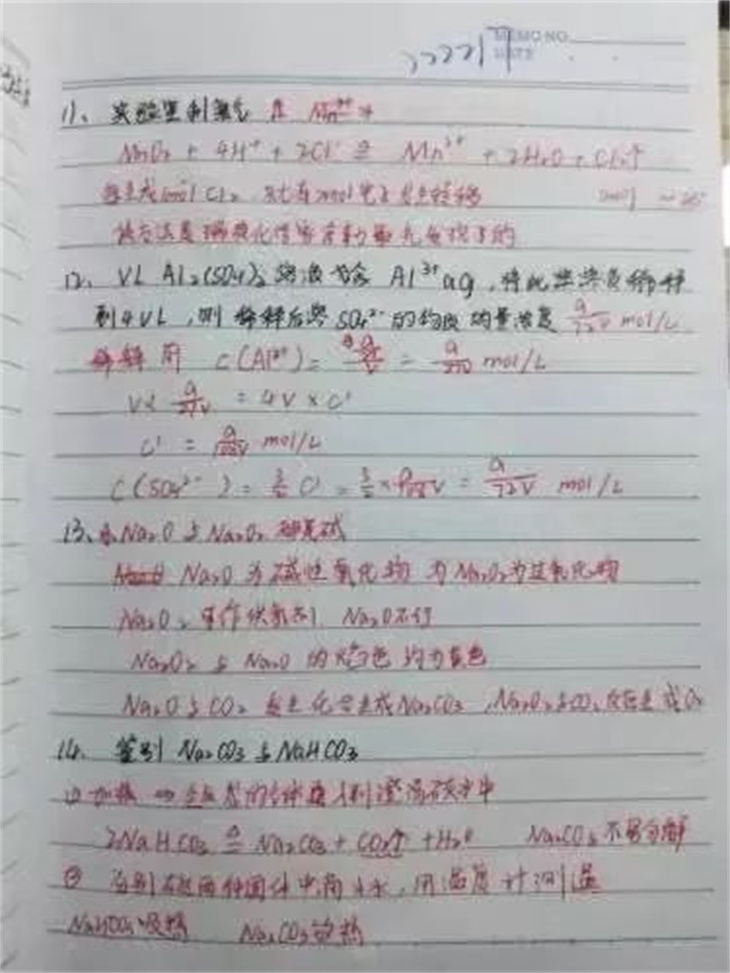 MEMO NO.
DATE
11、实验室制氯气
MnO₂ + 4H⁺ + 2Cl⁻ ≜ Mn²⁺ + 2H₂O + Cl₂↑
每生成1mol Cl₂ 就有2mol电子发生转移
12、VL Al₂(SO₄)₃ 溶液 含 Al³⁺ ag,将此 溶液稀释
到4VL,则稀释后 SO₄²⁻ 的物质的量浓度 a/72V mol/L
稀释前 C(Al³⁺) = = mol/L
V× a/27V = 4V × C'
C' = a/108V mol/L
C(SO₄²⁻) = 3/2 C' = 3/2 × a/108V = a/72V mol/L
13、Na₂O与Na₂O₂
Na₂O为碱性氧化物 Na₂O₂为过氧化物
Na₂O₂可作供氧剂,Na₂O不行
Na₂O₂与Na₂O的焰色均为黄色
Na₂O与CO₂ 发生化合生成Na₂CO₃,Na₂O₂与CO₂反应生成O₂
14、鉴别Na₂CO₃与NaHCO₃
① 加热 气体通入到澄清石灰水中
2NaHCO₃ ≜ Na₂CO₃ + CO₂↑ + H₂O Na₂CO₃不易分解
② 分别在两种固体中滴水,用温度计测温
NaHCO₃吸热 Na₂CO₃放热